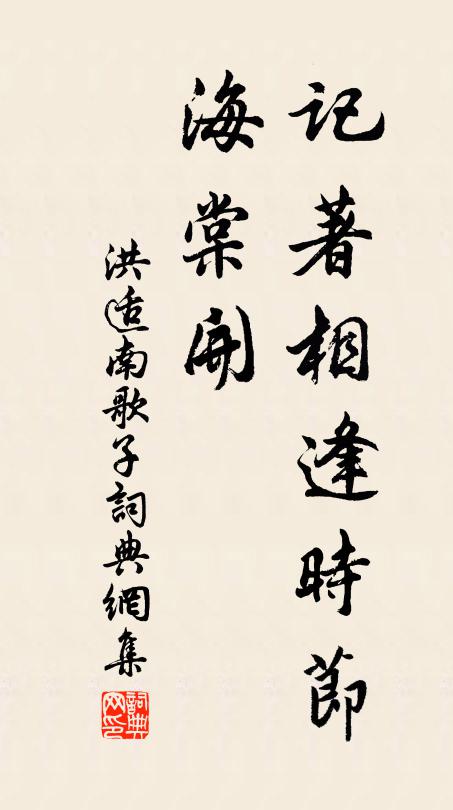 記著相逢時節
海棠開
洪适南歌子詞典網集
詞典網印